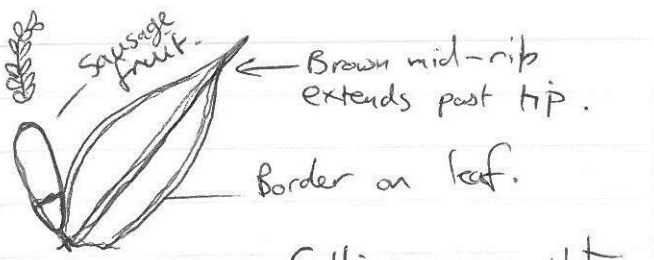 sausage
fruit.
Brown mid-rib
extends past tip.
Border on leaf.